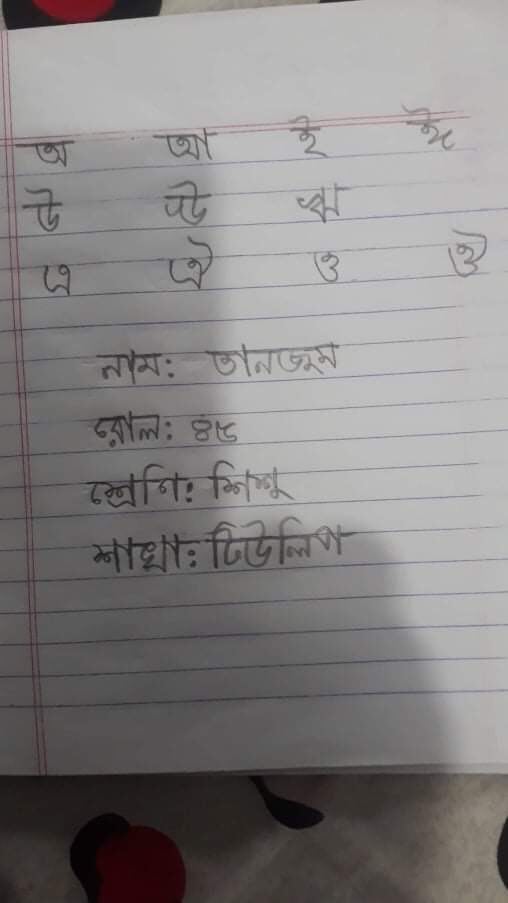 অ আ ই ঈ
উ ঊ ঋ
এ ঐ ও ঔ
নাম: তানজুম
রোল: ৪৫
শ্রেণি: শিশু
শাখা: টিউলিপ